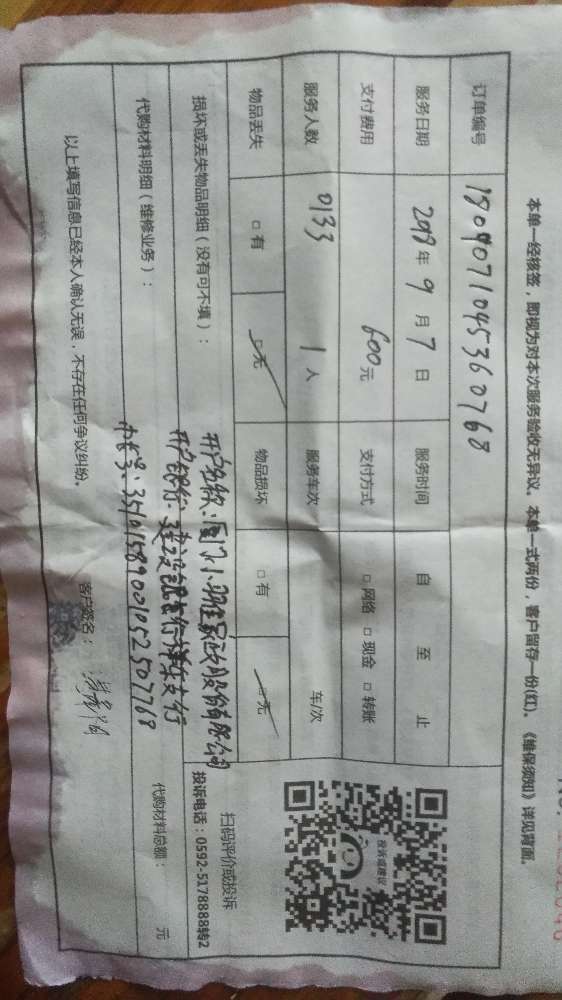 本单一经核签，即视为对本次服务验收无异议。本单一式两份，客户留存一份(红)。《维保须知》详见背面。
订单编号 1809071045360768
服务日期 2018 年 9 月 7 日 服务时间 自 至 止
支付费用 600元 支付方式 □ 网络 □ 现金 □ 转账
服务人数 0133 1 人 服务车次 车/次
物品丢失 □ 有 □ 无 物品损坏 □ 有 □ 无
损坏或丢失物品明细（没有可不填）：
开户名称：厦门小羽佳家政股份有限公司
开户银行：建设银行 支行
代购材料明细（维修业务）：
35101589001052507768
代购材料总额： 元
投诉或建议
扫码评价或投诉
投诉电话：0592-5178888转2
以上填写信息已经本人确认无误，不存在任何争议纠纷。
客户签名：